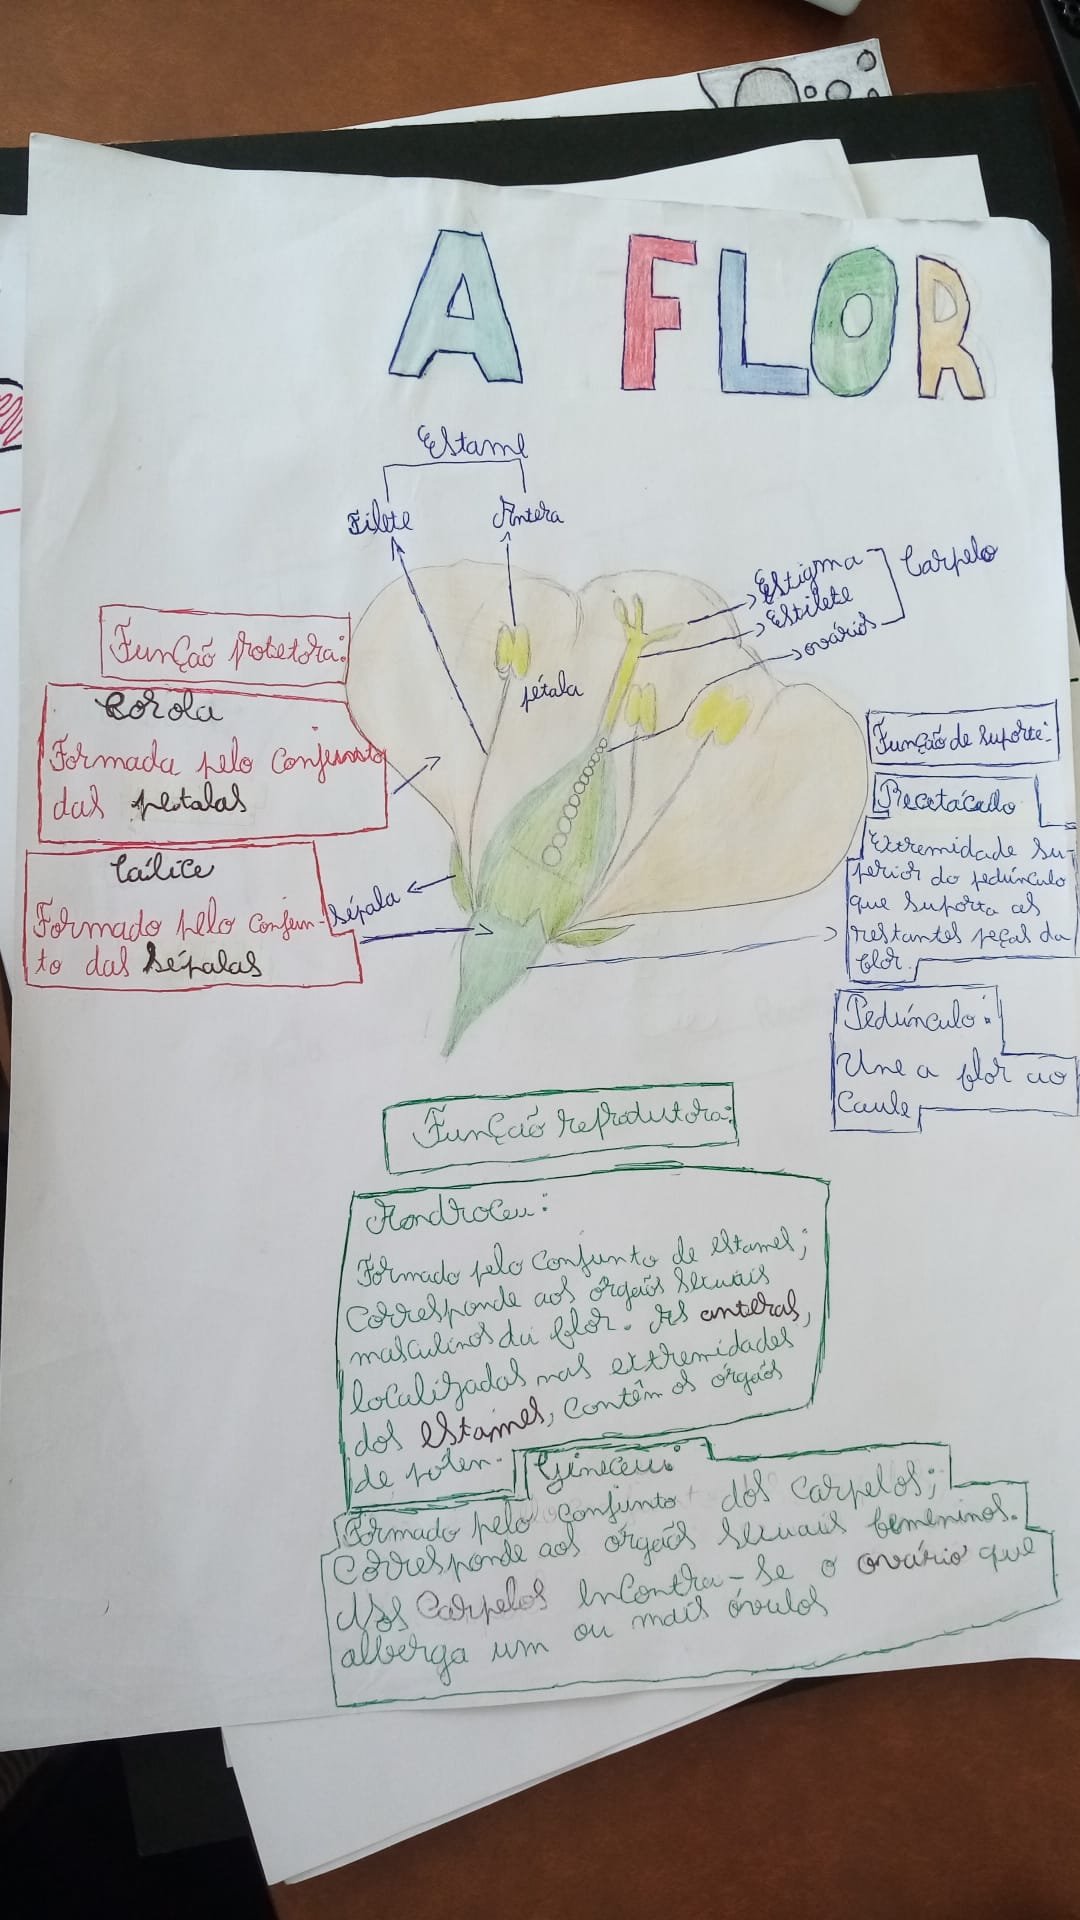 A FLOR
Estame
Filete
Antera
Estigma
Estilete
ovários
Carpelo
pétala
Função protetora:
Corola
Formada pelo conjunto
das petalas
Caílice
Formado pelo conjun-
to das Sépalas
Sépala
Função de suporte:
Recetácado
Extremidade su-
perior do pedúnculo
que suporta as
restantes peças da
flor.
Pedúnculo:
Une a flor ao
caule
Função reprodutora:
Androceu:
Formado pelo conjunto de estames;
corresponde aos órgaõs sexuais
masculinos da flor. As anteras,
localizadas nas extremidades
dos estames, contêm os órgaõs
de polen.
Gineceu:
Formado pelo conjunto dos carpelos;
corresponde aos órgaõs sexuais femeninos.
Nos Carpelos incontra-se o ovário que
alberga um ou mais óvulos